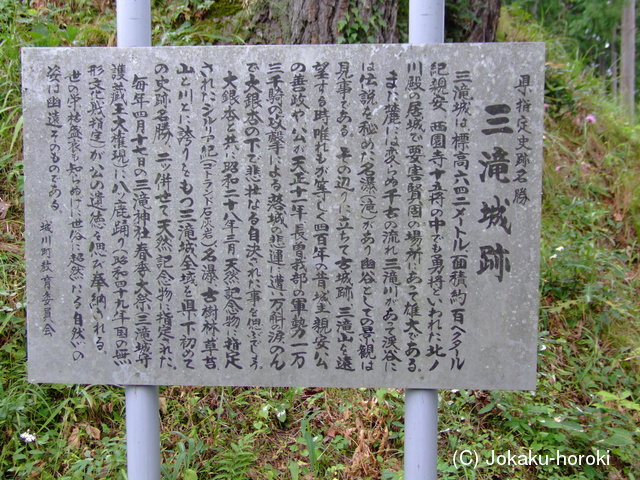 県指定史跡名勝
三滝城跡
三滝城は標高六四二メートル、面積約百ヘクタール
紀親安、西園寺十五将の中でも勇将といわれた北ノ
川殿の居城で要害賢固の場所にあって雄大である。
また麓には変らぬ千古の流れ三滝川があって渓谷に
は伝説を秘めた名瀑(滝)があり幽谷としての景観は
見事である。その辺りに立ちて古城跡、三滝山を遠
望する時唯れもが等しく四百年の昔城主親安公
の善政や、公が天正十一年長曽我部の軍勢一万
三千騎の攻撃による落城の悲運に遭い万斛の涙のん
で大銀杏の下で悲壮なる自決された事を偲ぶであろう。
大銀杏と共に昭和三十八年二月天然記念物に指定
され、シルリア紀(ゴトランド石灰岩)名瀑、古樹林、草苔
山と川とに誇りをもつ三滝城全域を県下初めて
の史跡名勝、二つ併せて天然記念物に指定された。
毎年四月十七日の三滝神社春季大祭に三滝城守
護蔵王大権現に八ッ鹿踊り(昭和四十九年国の無
形文化財選定)が公の遺徳を偲び奉納される。
世の栄枯盛衰も知らぬげに世俗に超然たる自然がの
姿は幽遠そのものである。
城川町教育委員会
(C) Jokaku-horoki